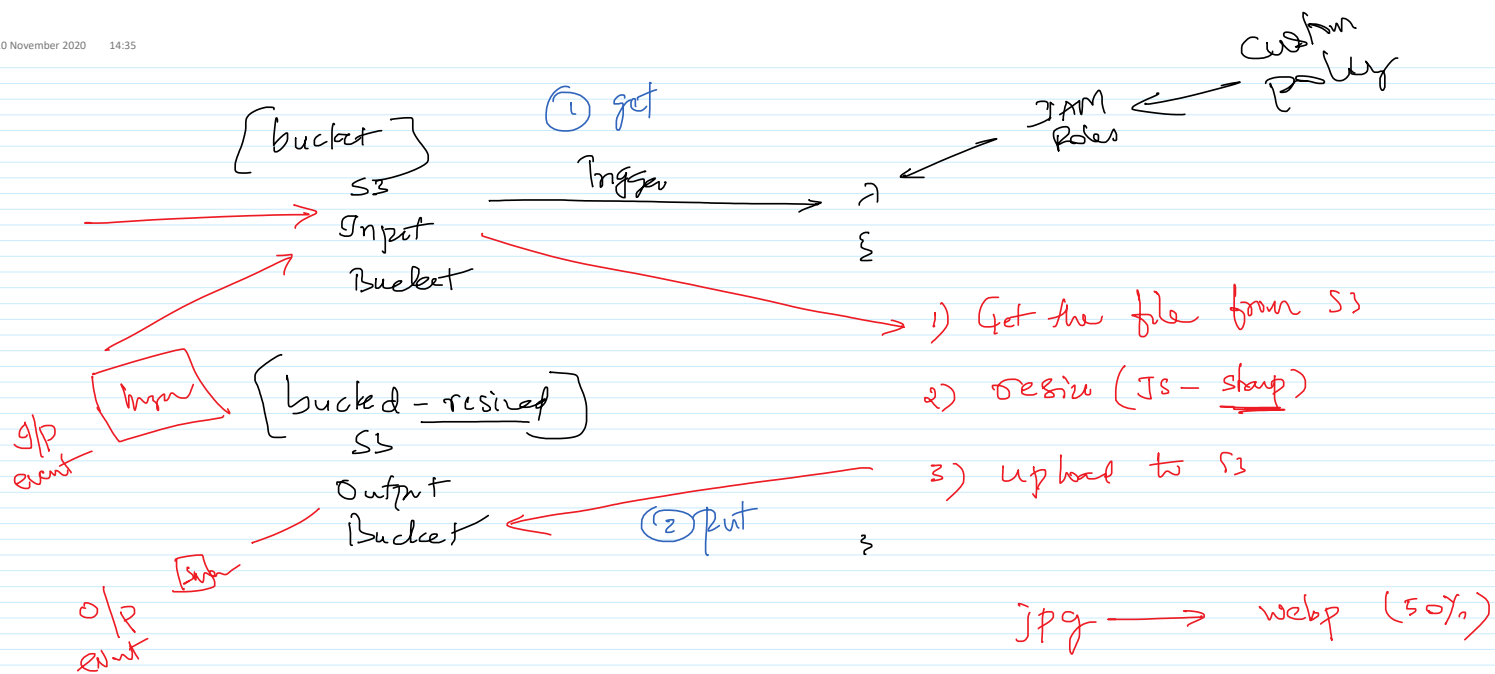 0 November 2020 14:35
custom
policy
IAM
Roles
① get
[bucket]
S3
Input
Bucket
Trigger
λ
{
1) Get the file from S3
2) resize (JS - sharp)
3) upload to S3
}
I/P
event
[bucked - resized]
S3
Output
Bucket
② put
O/P
event
jpg → webp (50%)